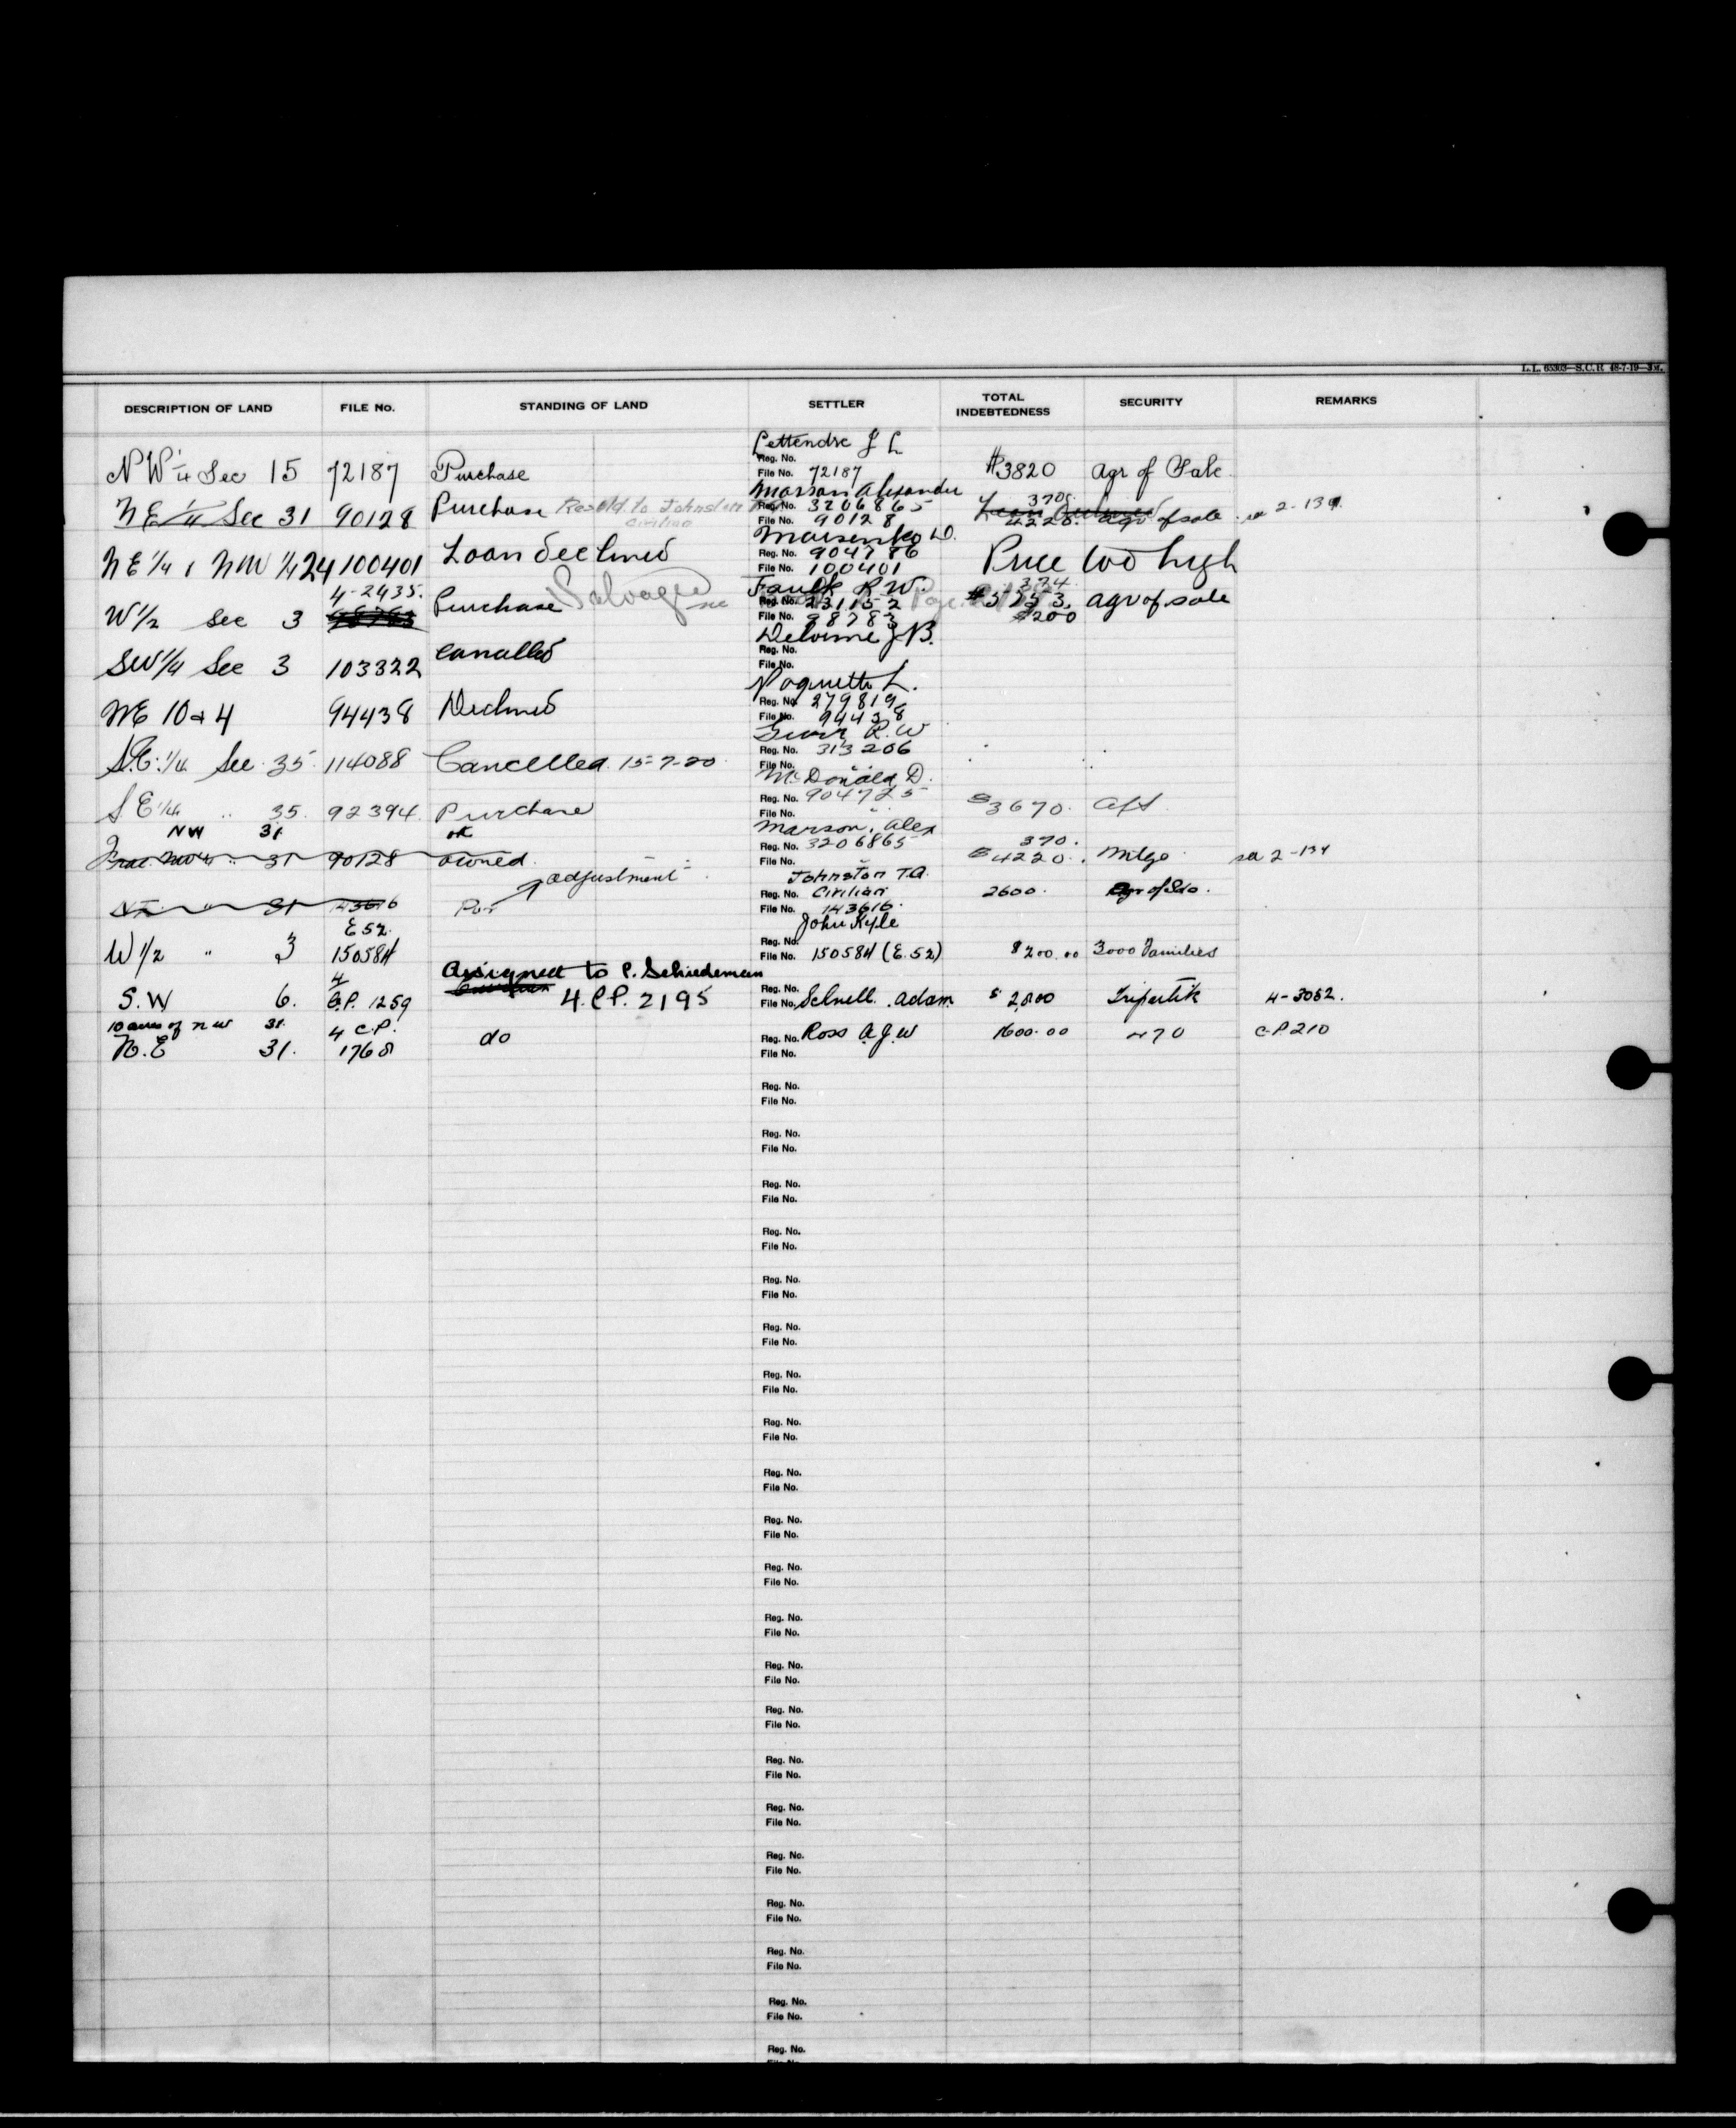 L. L. 65303—S.C.R. 48-7-19—3M.
DESCRIPTION OF LAND FILE No. STANDING OF LAND SETTLER TOTAL INDEBTEDNESS SECURITY REMARKS
NW 1/4 Sec 15 72187 Purchase J L
Reg. No.
File No. 72187 $3820 Agr of Sale
NE 1/4 Sec 31 90128 Purchase Resold to Johnston civilian Marson Alexander
Reg. No. 3206865 370.
File No. 90128 4220. agr of sale 2-134
NE 1/4 NW 1/4 24 100401 Loan Declined
Reg. No. 904786
File No. 100401 Price too high
4-2435.
W 1/2 Sec 3 Purchase Salvage Faulk R.W.
Reg. No. 231152 374.
File No. 98783 agr of sale
$200
SW 1/4 Sec 3 103322 cancelled Delorme J B.
Reg. No.
File No.
NE 10 & 4 94438 Declined Paquette L.
Reg. No. 279819
File No. 94438
S.E. 1/4 Sec 35 114088 Cancelled 15-7-20 R.W
Reg. No. 313206
File No.
SE 1/4 " 35. 92394 Purchase McDonald D.
Reg. No. 904725
File No. " $3670. afs
NW 31 ok Marson, Alex
Frac. NW 1/4 " 31 90128 owned.
Reg. No. 3206865 370.
File No. " $4220. Mtge 2-134
adjustment Johnston T.A.
31 43616 Pur
Reg. No. Civilian 2600. Agr of Sale.
File No. 143616.
E 52. John Kyle
W 1/2 " 3 150584
Reg. No.
File No. 150584 (E.52) $200.00 3000 Families
Assigned to P. Schiedeman
S.W 6. 4 C.P. 1259 4. C.P. 2195
Reg. No.
File No. Schnell. Adam $ 2,800 Tripartite 4-3062.
10 acres of NW 31. 4 C.P.
N.E 31. 1768 do
Reg. No. Ross A.J.W 1600.00 470 C.P 210
File No.
Reg. No.
File No.
Reg. No.
File No.
Reg. No.
File No.
Reg. No.
File No.
Reg. No.
File No.
Reg. No.
File No.
Reg. No.
File No.
Reg. No.
File No.
Reg. No.
File No.
Reg. No.
File No.
Reg. No.
File No.
Reg. No.
File No.
Reg. No.
File No.
Reg. No.
File No.
Reg. No.
File No.
Reg. No.
File No.
Reg. No.
File No.
Reg. No.
File No.
Reg. No.
File No.
Reg. No.
File No.
Reg. No.